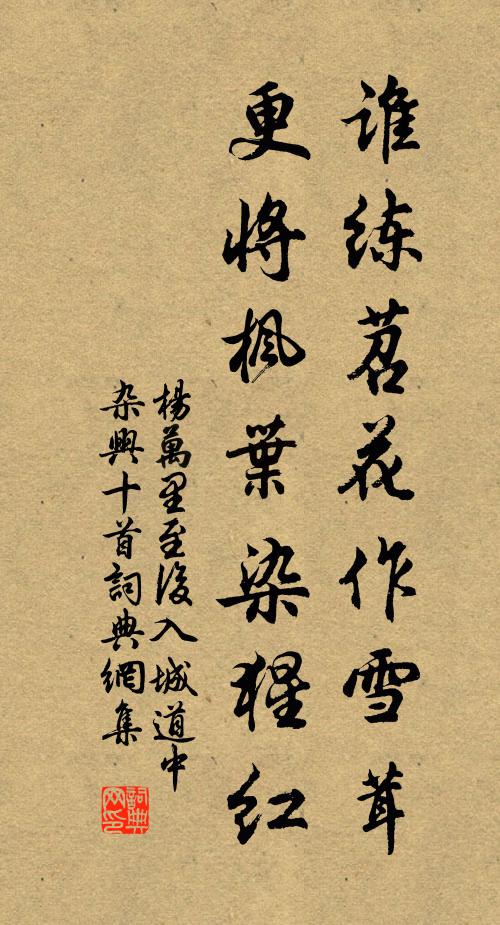 谁练苕花作雪茸
更将枫葉染猩红
楊萬里至後入城道中
杂興十首詞典網集
詞典網印